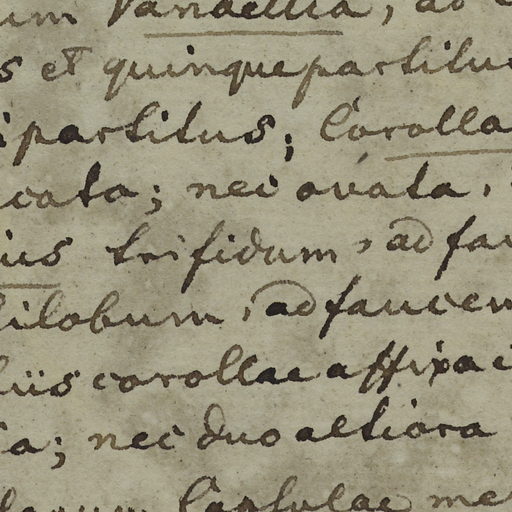 um Vandellia, ad
s et quinquepartitu
ipartitus; Corolla
cata; nec ovata,
ius trifidum, ad fau
ilobum, ad faucem
iis corollae affixa
ia; nec duo altiora
Capsulae me